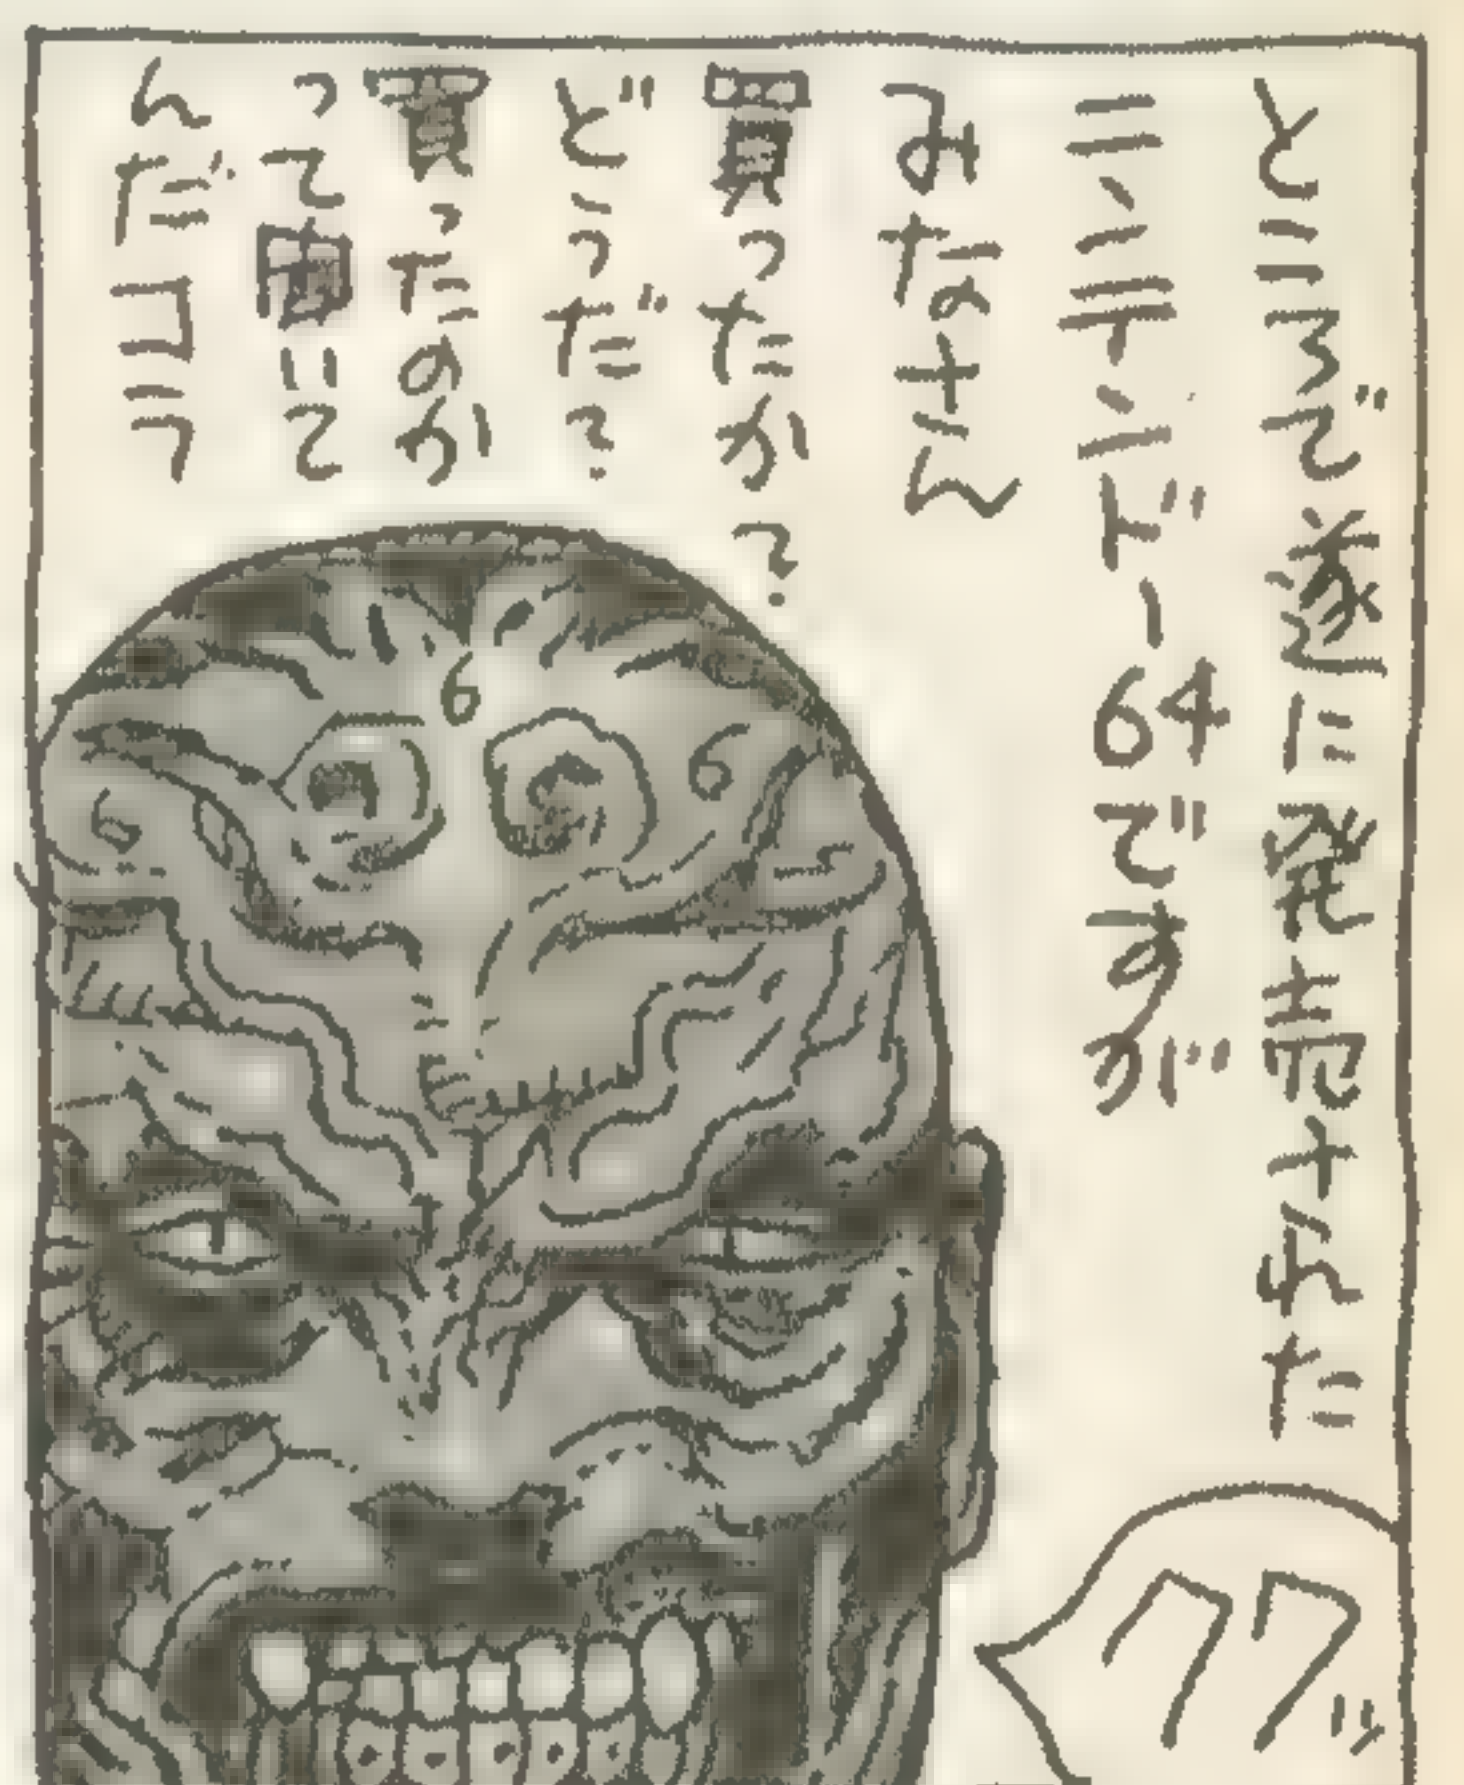 ところで遂に発売された
ニンテンドー64ですが
みなさん
買ったか?
どうだ?
買ったのか
って聞いて
んだコラ
6
6
6
クワッ